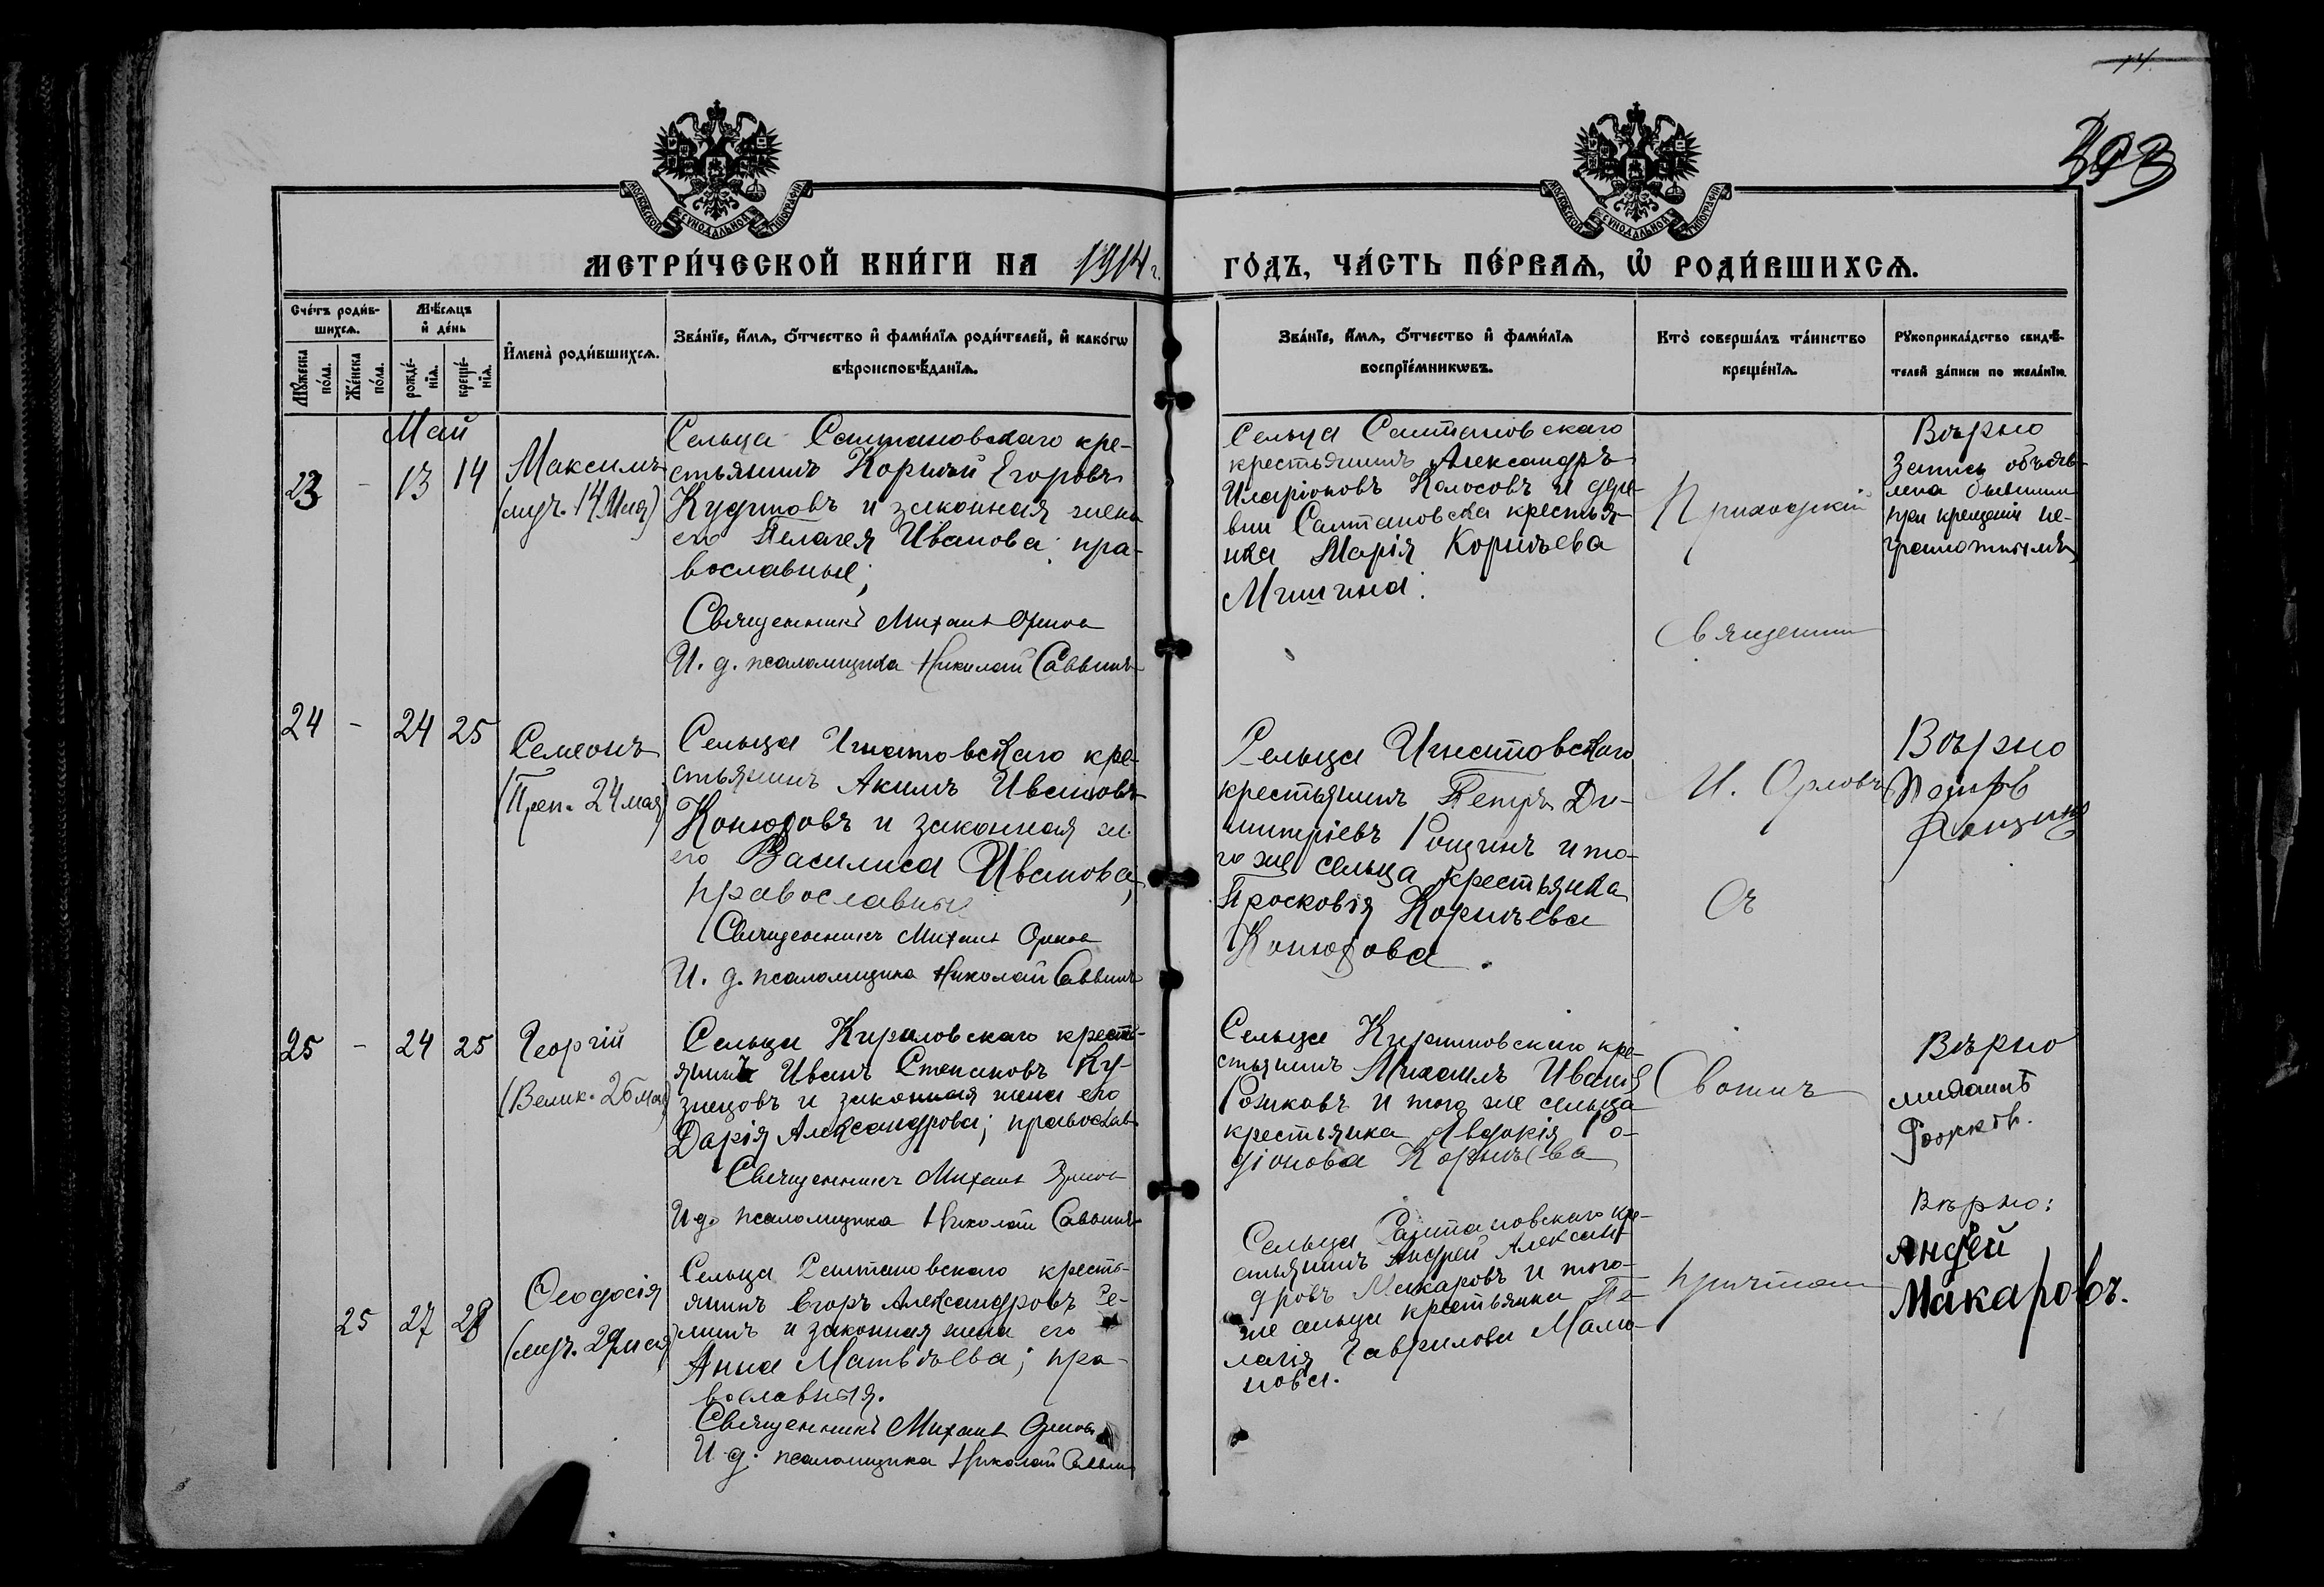 14.
МОСКОВСКОЙ СУНОДАЛЬНОЙ ТИПОГРАФІИ
МОСКОВСКОЙ СУНОДАЛЬНОЙ ТИПОГРАФІИ
МЕТРИ́ЧЕСКОЙ КНИ́ГИ НА 1914 г. ГО́ДЪ, ЧА́СТЬ ПЕ́РВАѦ, Ѡ҆ РОДИ́ВШИХСѦ.
Сче́тъ роди́в-
шихсѧ.
Мꙋ́жеска
по́ла.
Же́нска
по́ла.
Мѣ́сѧцъ
и҆ де́нь
рожде́-
нїѧ.
креще́-
нїѧ.
И҆мена̀ роди́вшихсѧ.
Зва́нїе, и҆́мѧ, ѻ҆́тчество и҆ фами́лїѧ роди́телей, и҆ како́гѡ
вѣроисповѣ́данїѧ.
Зва́нїе, и҆́мѧ, ѻ҆́тчество и҆ фами́лїѧ
воспрїе́мникѡвъ.
Кто̀ соверша́лъ та́инство
креще́нїѧ.
Рꙋкоприкла́дство свидѣ́-
телей за́писи по жела́нїю.
Май
23 - 13 14
Максимъ
(муч. 14 Мая)
Сельца Салтановскаго кре-
стьянинъ Корнилій Егоровъ
и законная жена
его Пелагея Иванова; пра-
вославные;
Священникъ Михаилъ Орловъ
И. д. псаломщика Николай Саввинъ
Сельца Салтановскаго
крестьянинъ Александръ
Иларіоновъ Колосовъ и дере-
вни Салтановска крестья-
нка Марія Корнильева
Мишина.
Приходскій
Священни
Вѣрно
Запись объяв-
лена бывшим
при крещеніи не-
грамотнымъ
24 - 24 25
Семеонъ
(Преп. 24 мая)
Сельца Игнатовскаго кре-
стьянинъ Акимъ Ивановъ
Конюховъ и законная ж.
его Василиса Иванова,
православные
Священникъ Михаилъ Орловъ
И. д. псаломщика Николай Саввинъ
Сельца Игнатовскаго
крестьянинъ Петръ Ди-
митріевъ Рощинъ и то-
го же сельца крестьянка
Просковія Корнильева
Конюхова.
И. Орловъ
Съ
Вѣрно
25 - 24 25
Георгій
(Велик. 26 мая)
Сельца Кириловскаго кресть-
янинъ Иванъ Степановъ Ку-
знецовъ и законная жена его
Дарія Александрова; православ.
Священникъ Михаилъ Орловъ
И д. псаломщика Николай Саввинъ
Сельца Кириловскаго кре-
стьянинъ Михаилъ Иванов
Рожковъ и того же сельца
крестьянка Авдокія Ро-
діонова Корнильева
Своимъ
Вѣрно
михаилъ
Рожков.
25 27 28
Ѳеодосія
(муч. 29 мая)
Сельца Салтановскаго кресть-
янинъ Егоръ Александровъ
и законная жена его
Анна Матвѣева; пра-
вославныя.
Священникъ Михаилъ Орловъ
И д. псаломщика Николай Саввин
Сельца Салтановскаго кре-
стьянинъ Андрей Алексан-
дровъ Макаровъ и того-
же сельца крестьянка Пе-
лагія Гаврилова Мама-
нова.
причтом
Вѣрно:
Андей
Макаровъ.